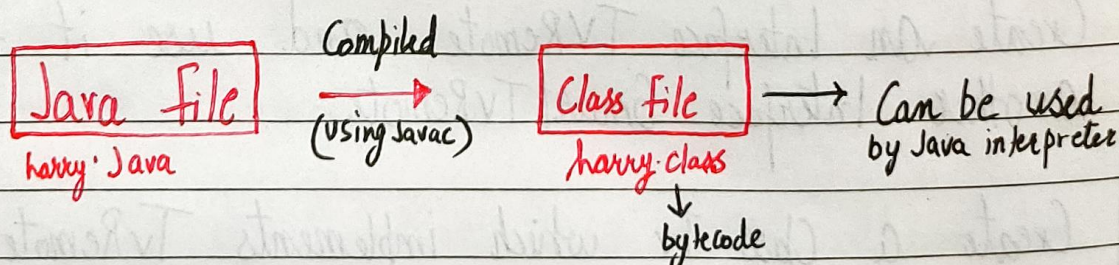 Java file
harry.Java
Compiled
(using Javac)
Class file
harry.class
bytecode
Can be used
by Java interpreter